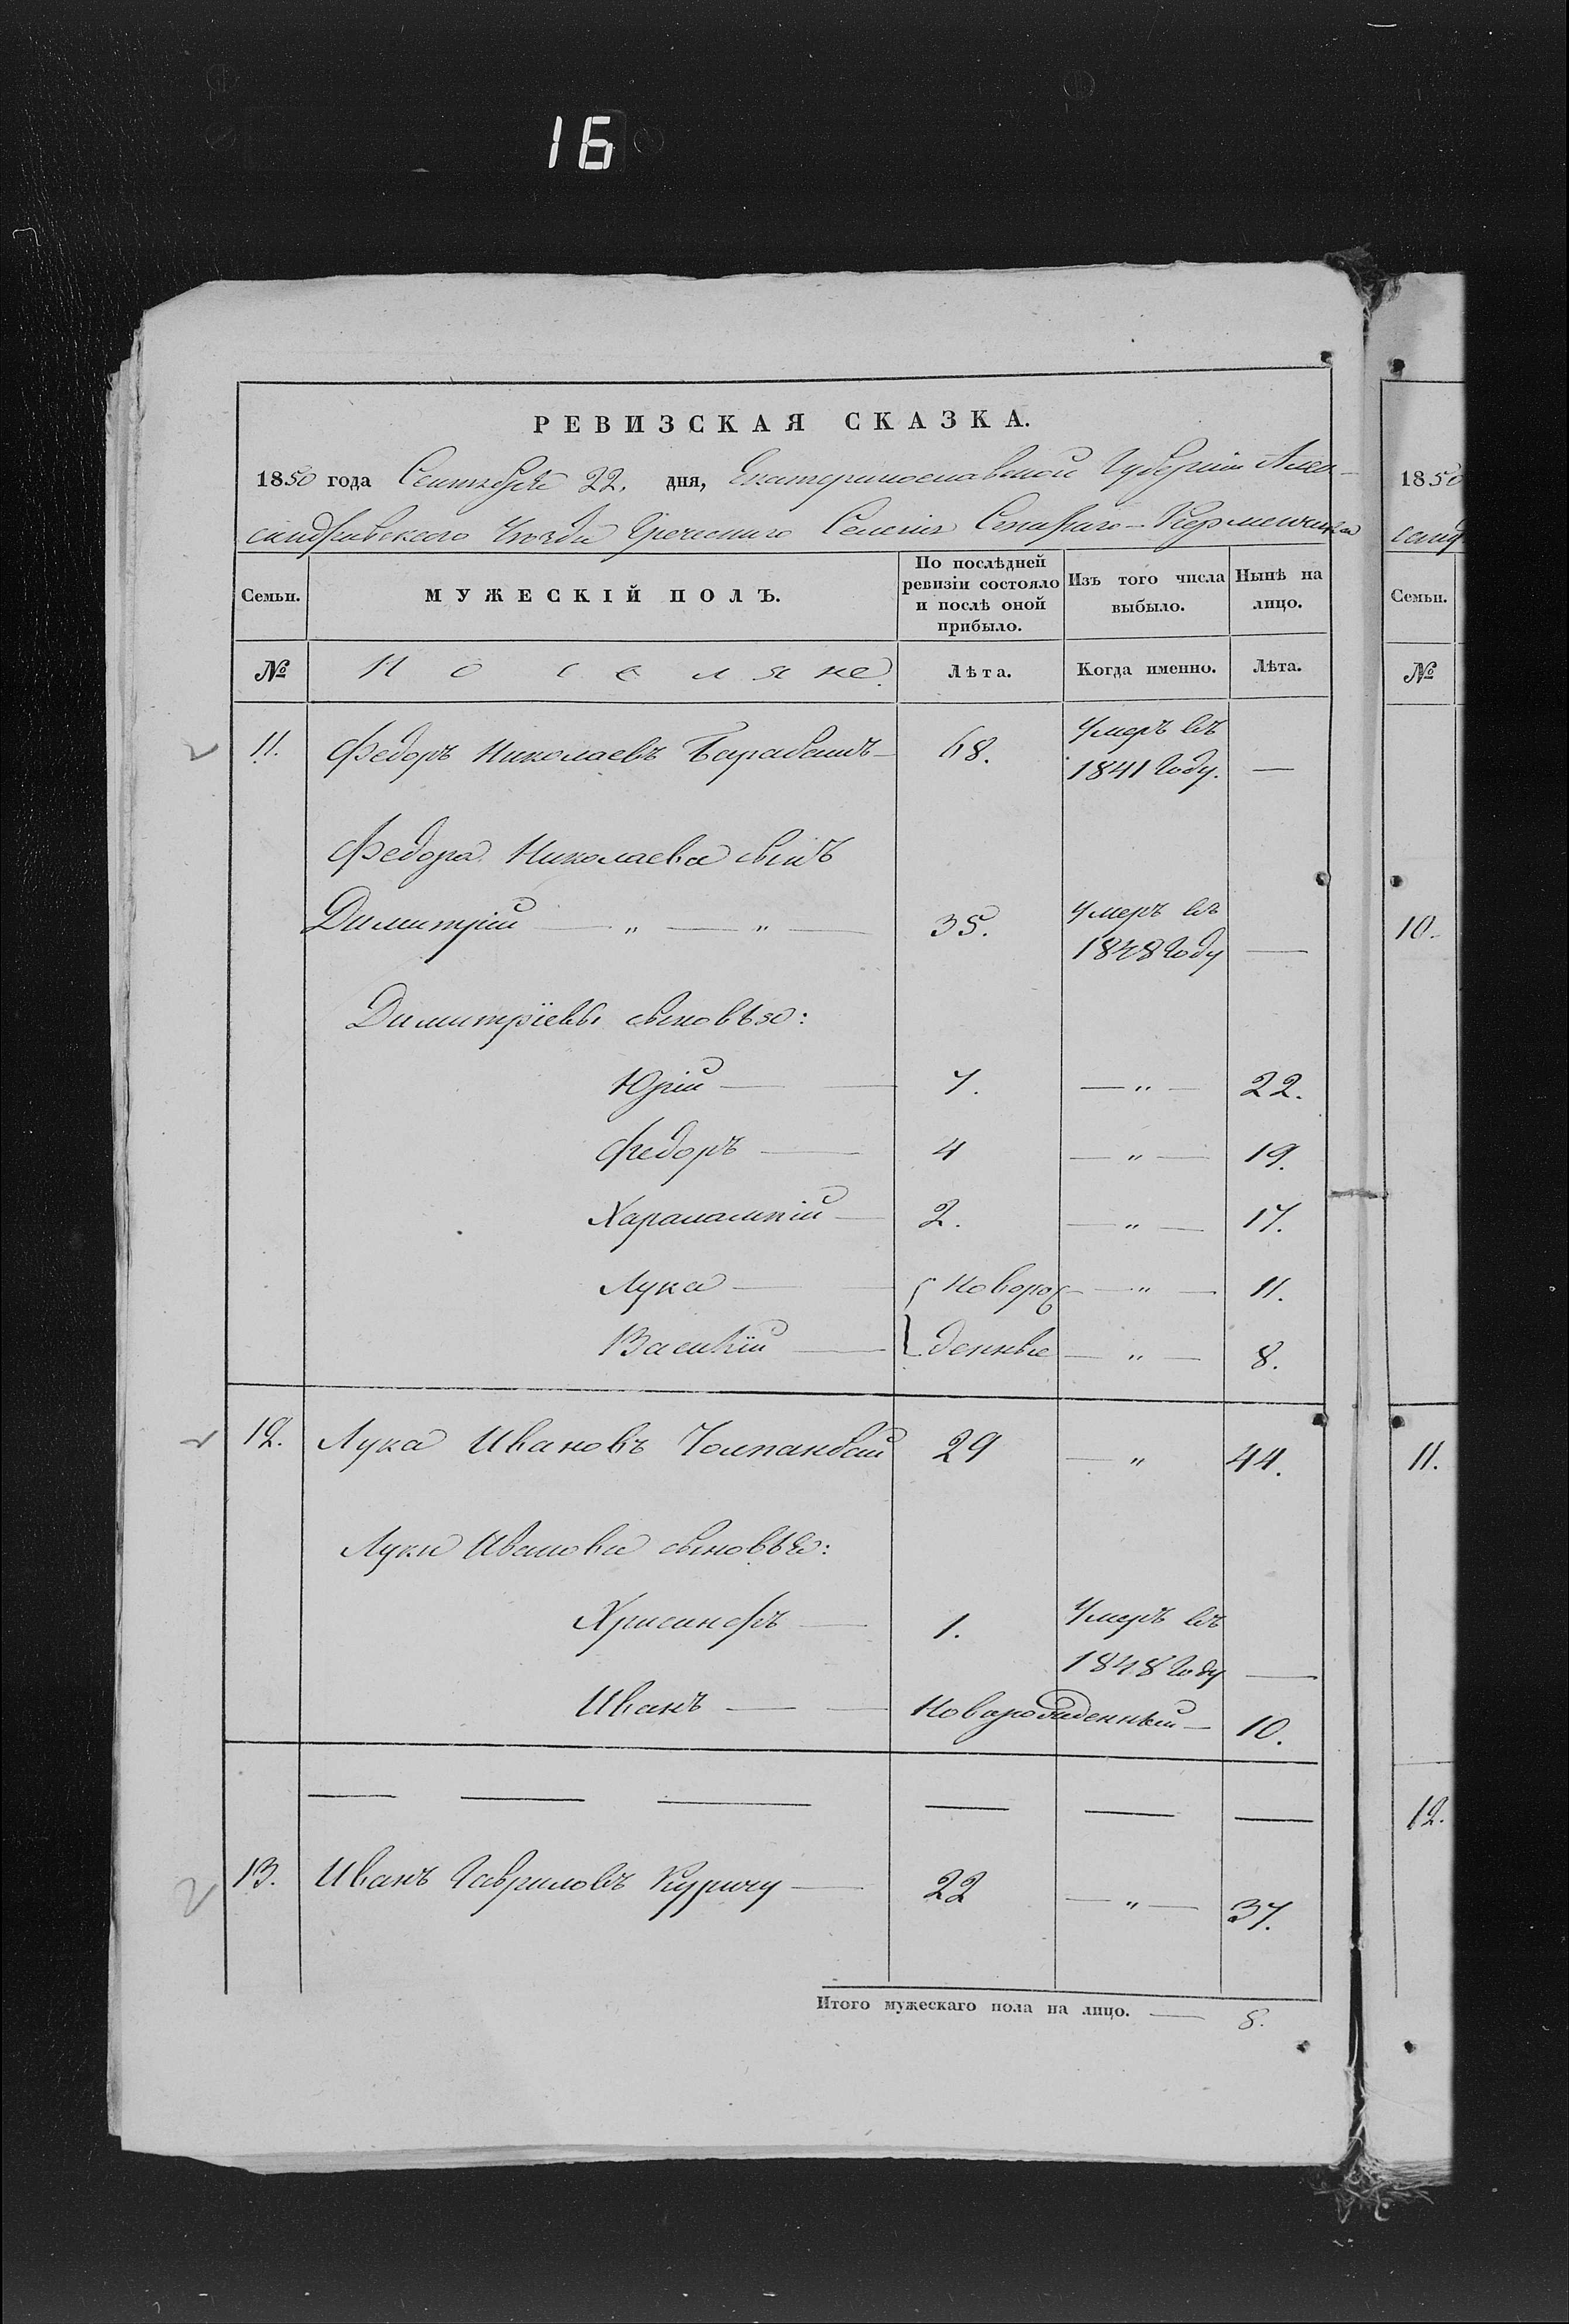 16
РЕВИЗСКАЯ СКАЗКА.
1850 года Сентября 22. дня, Екатеринославской Губернии Алек-
сандровского Уезда Греческого Селения Стараго-Керменчика
Семьи.
МУЖЕСКІЙ ПОЛЪ.
По послѣдней
ревизіи состояло
и послѣ оной
прибыло.
Изъ того числа
выбыло.
Нынѣ на
лицо.
№
Поселяне.
Лѣта.
Когда именно.
Лѣта.
11. Федоръ Николаевъ Барабашъ — 68. Умеръ въ
1841 Году. —
Федора Николаева сынъ
Димитрій — „ — „ — 35. Умеръ въ
1848 Году —
Димитріевы сыновья:
Юрій — — 7. — „ — 22.
Федоръ — 4 — „ — 19.
Харалампій — 2. — „ — 17.
Лука — — Новорож — „ — 11.
Василій — денные — „ — 8.
12. Лука Ивановъ 29 — „ 44.
Луки Иванова сыновья:
Хрисанфъ — 1. Умеръ въ
1848 Году —
Иванъ — — Новорожденный — 10.
— — — — — —
13. Иванъ Гавриловъ — 22 — „ — 37.
Итого мужескаго пола на лицо. — 8.
1850
санд
Семьи.
№
10.
11.
12.